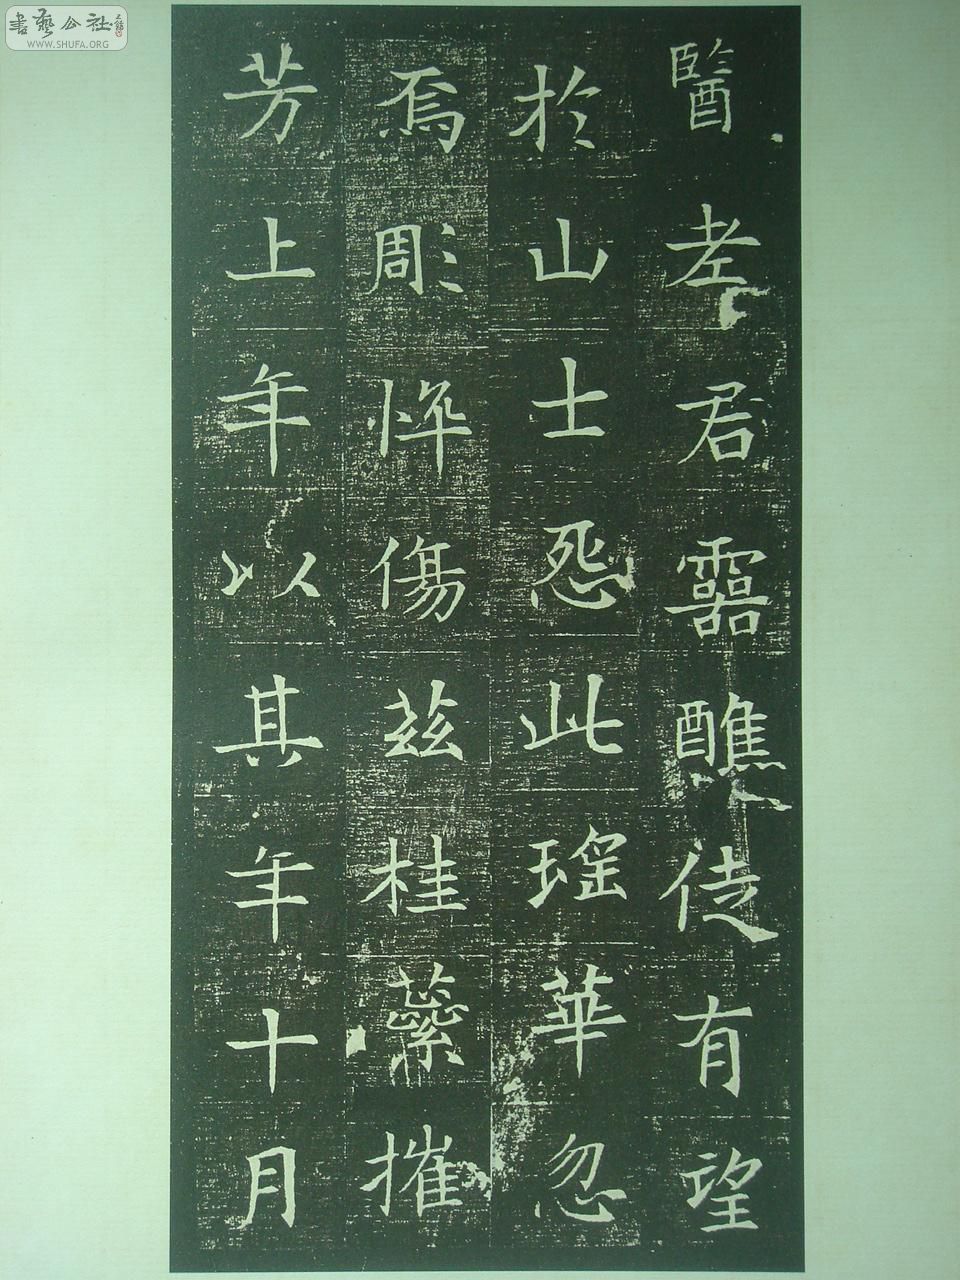 書藝公社
WWW.SHUFA.ORG
醫老君靈醮徒有望
於山士怨此瑤華忽
焉彫悴傷茲桂蘂摧
芳上年以其年十月